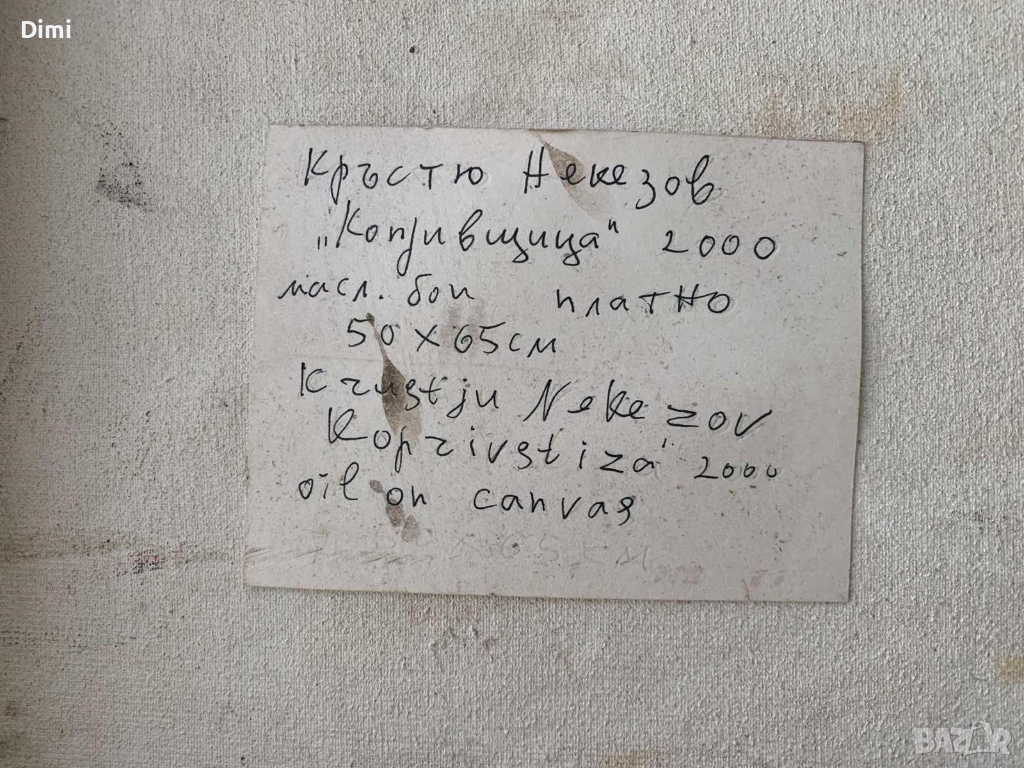 Dimi
Кръстю Некезов
„Копривщица" 2000
масл. бои платно
50 х 65 см
Krustju Nekezov
Koprivstiza" 2000
oil on canvas
х 65 см
BAZAR